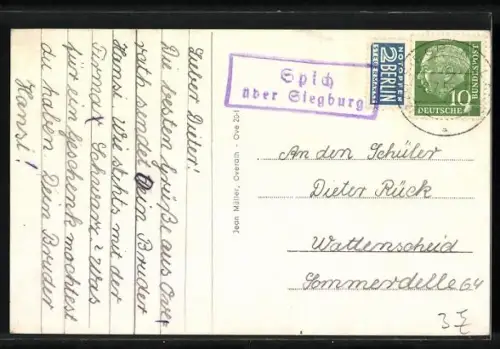 Lieber Dieter!
Die besten Grüße aus Over,
rath sendet Dein Bruder
Hansi. Wie stehts mit der
Firma X Schwarz? Was
für ein Geschenk möchest
du haben. Dein Bruder
Hansi!
Spich
über Siegburg
NOTOPFER
2 BERLIN
STEUERMARKE
DEUTSCHE
BUNDESPOST
10
Jean Müller, Overath - Ove
An den Schüler
Dieter Rück
Wattenscheid
Sommerdelle 64